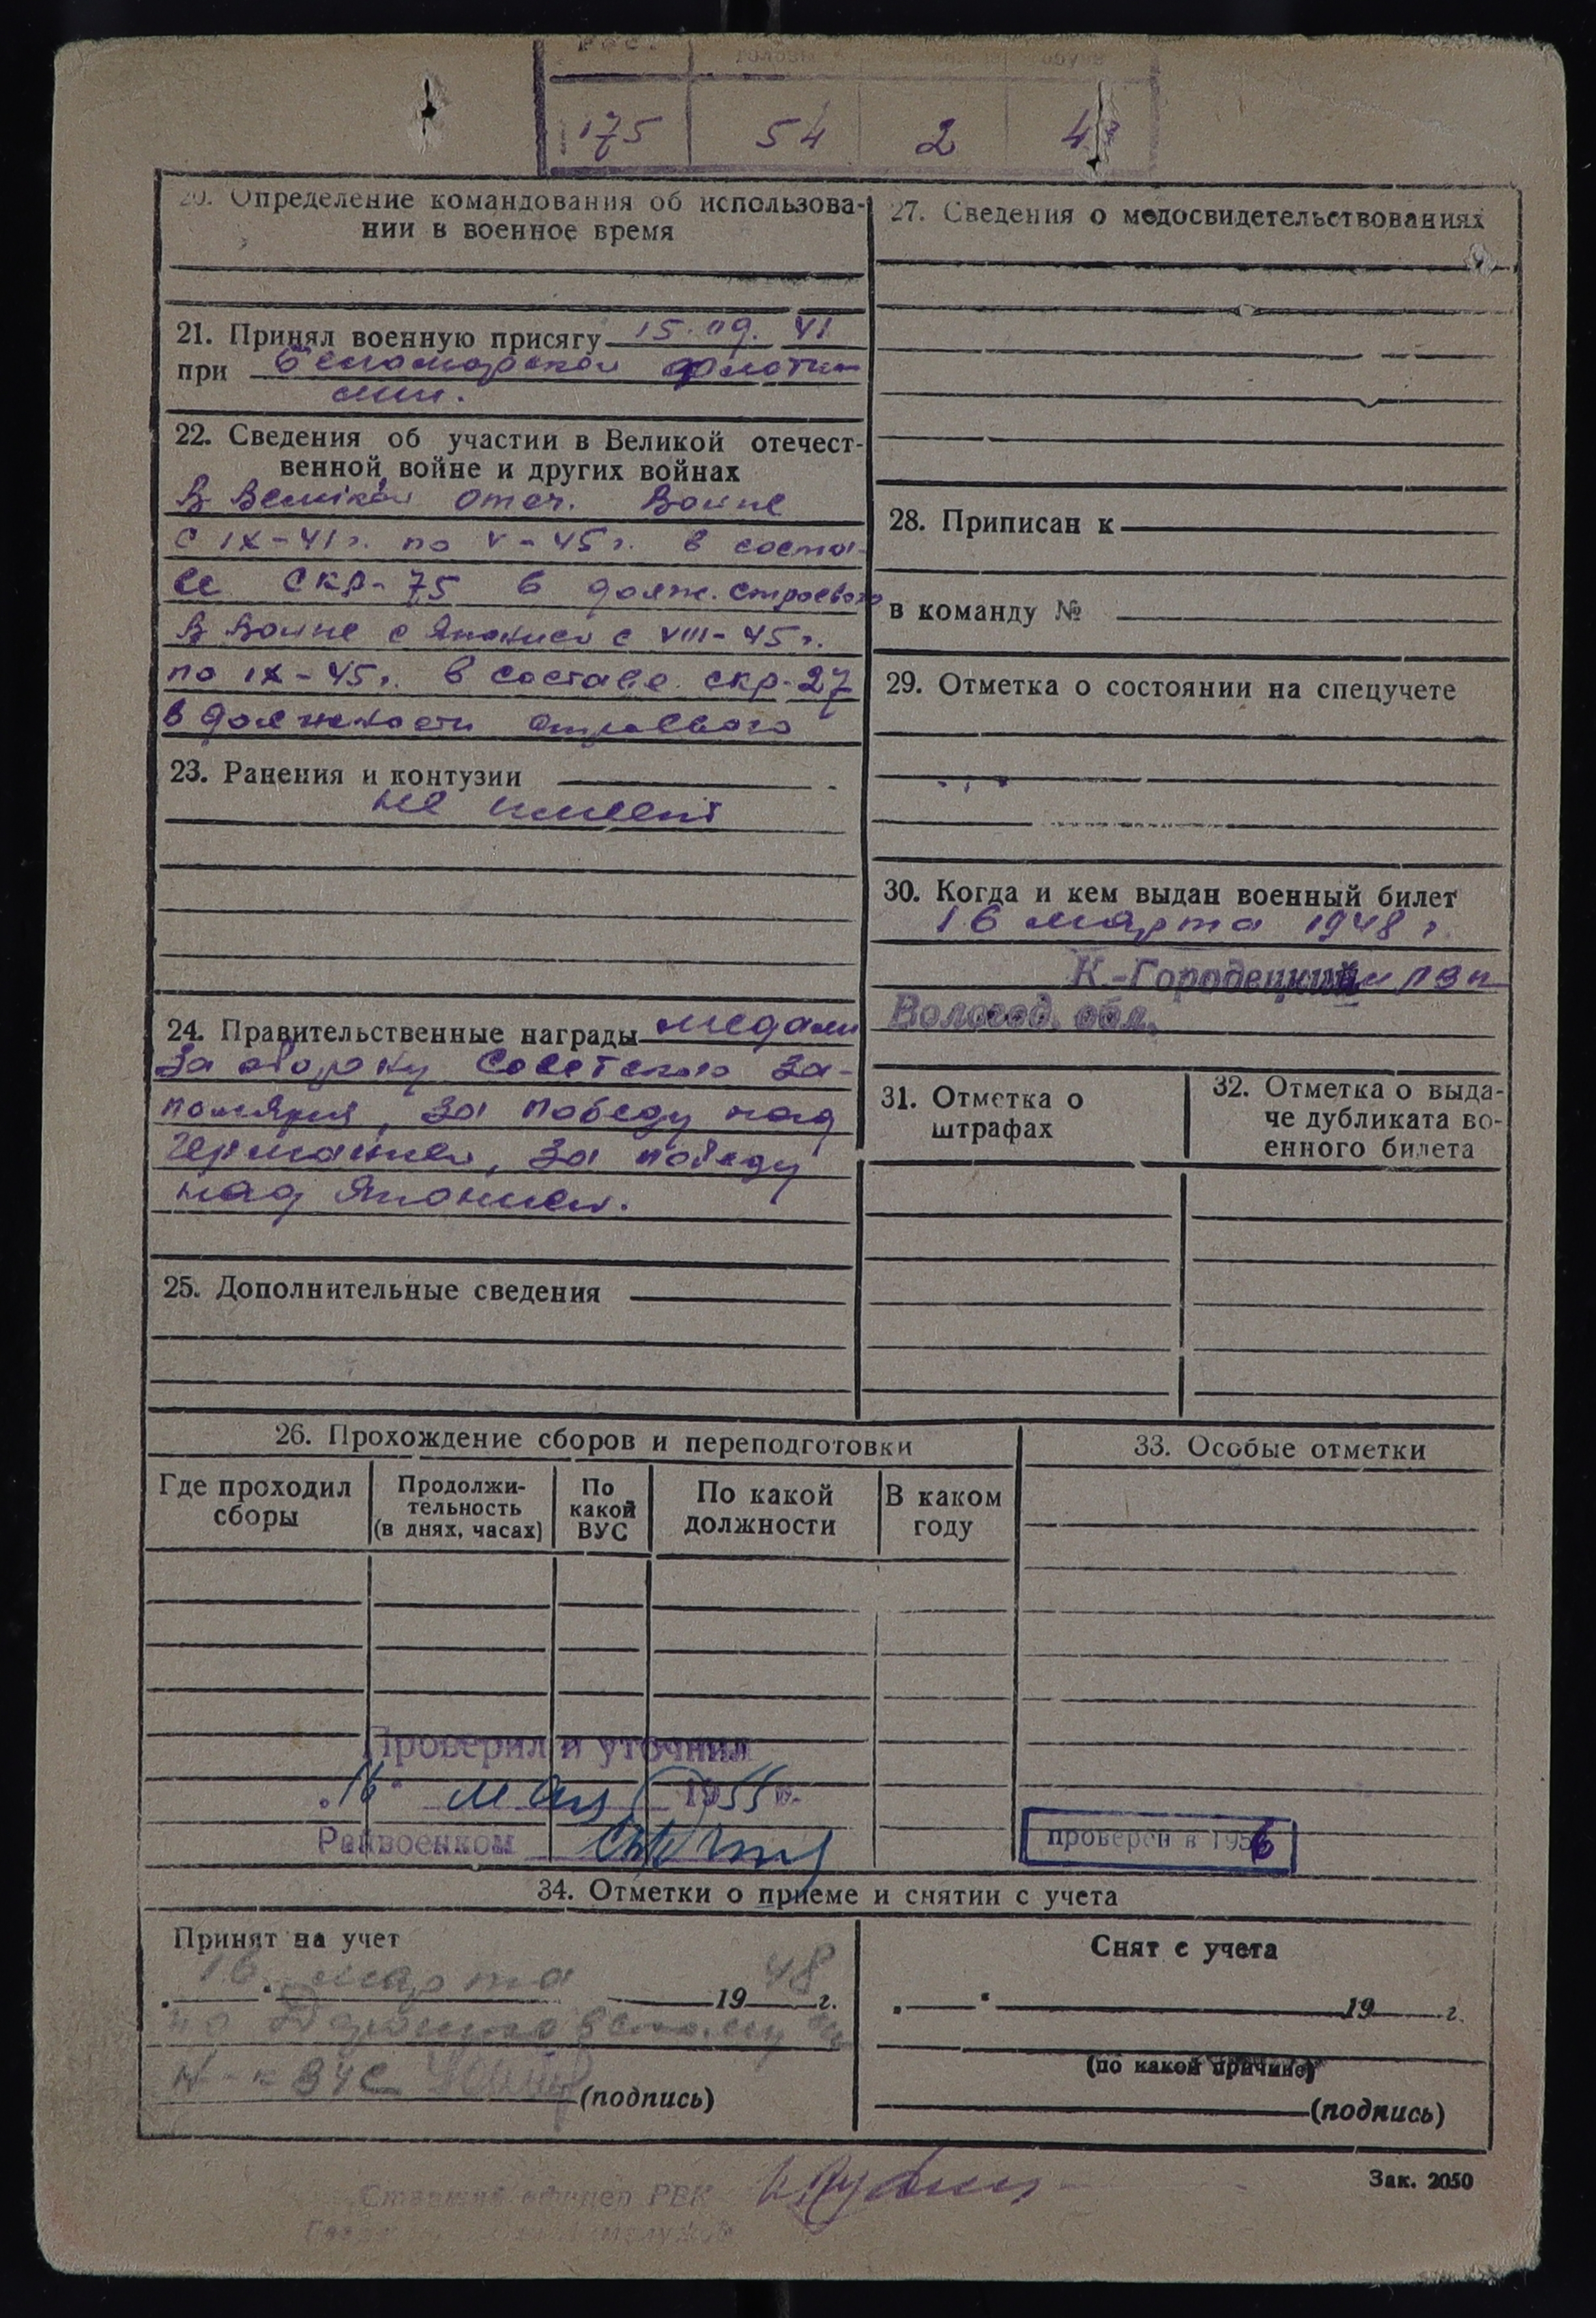 175 54 2
20. Определение командования об использова-
нии в военное время
21. Принял военную присягу 15.09. 41
при Беломорской флоти-
лии.
22. Сведения об участии в Великой отечест-
венной войне и других войнах
В Великой Отеч. Войне
с IX-41 г. по V-45 г. в соста-
ве СКР-75 в долж. строевого
В Войне с Японией с VIII-45 г.
по IX-45 г. в составе скр-27
в должности строевого
23. Ранения и контузии
не имеет
24. Правительственные награды медали
За оборону Советского За-
полярья, за победу над
Германией, за победу
над Японией.
25. Дополнительные сведения
26. Прохождение сборов и переподготовки
Где проходил
сборы
Продолжи-
тельность
(в днях, часах)
По
какой
ВУС
По какой
должности
В каком
году
Проверил и уточнил
"16" мая 1955 г.
Райвоенком
27. Сведения о медосвидетельствованиях
28. Приписан к
в команду №
29. Отметка о состоянии на спецучете
30. Когда и кем выдан военный билет
16 марта 1948 г.
К.-Городецким РВК
Вологод. обл.
31. Отметка о
штрафах
32. Отметка о выда-
че дубликата во-
енного билета
33. Особые отметки
проверен в 1956
34. Отметки о приеме и снятии с учета
Принят на учет
"16" марта 1948 г.
по
Н-к ВУС
(подпись)
Снят с учета
" " 19 г.
(по какой причине)
(подпись)
Зак. 2050
офицер РВК